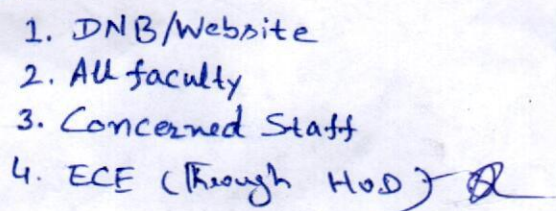 1. DNB/Website
2. All faculty
3. Concerned Staff
4. ECE (Through HoD)